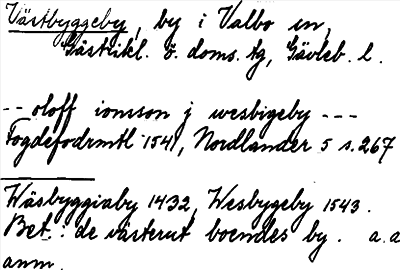 Västbyggeby, by i Valbo sn,
Gästrikl. ö. doms. tg, Gävleb. l.
-- oloff ionsson j wesbigeby ---
Fogdefodrmtl 1541, Nordlander 5 s. 267
Wäsbyggiaby 1432, Wesbygeby 1543.
Bet.: de västerut boendes by. a.a
anm.